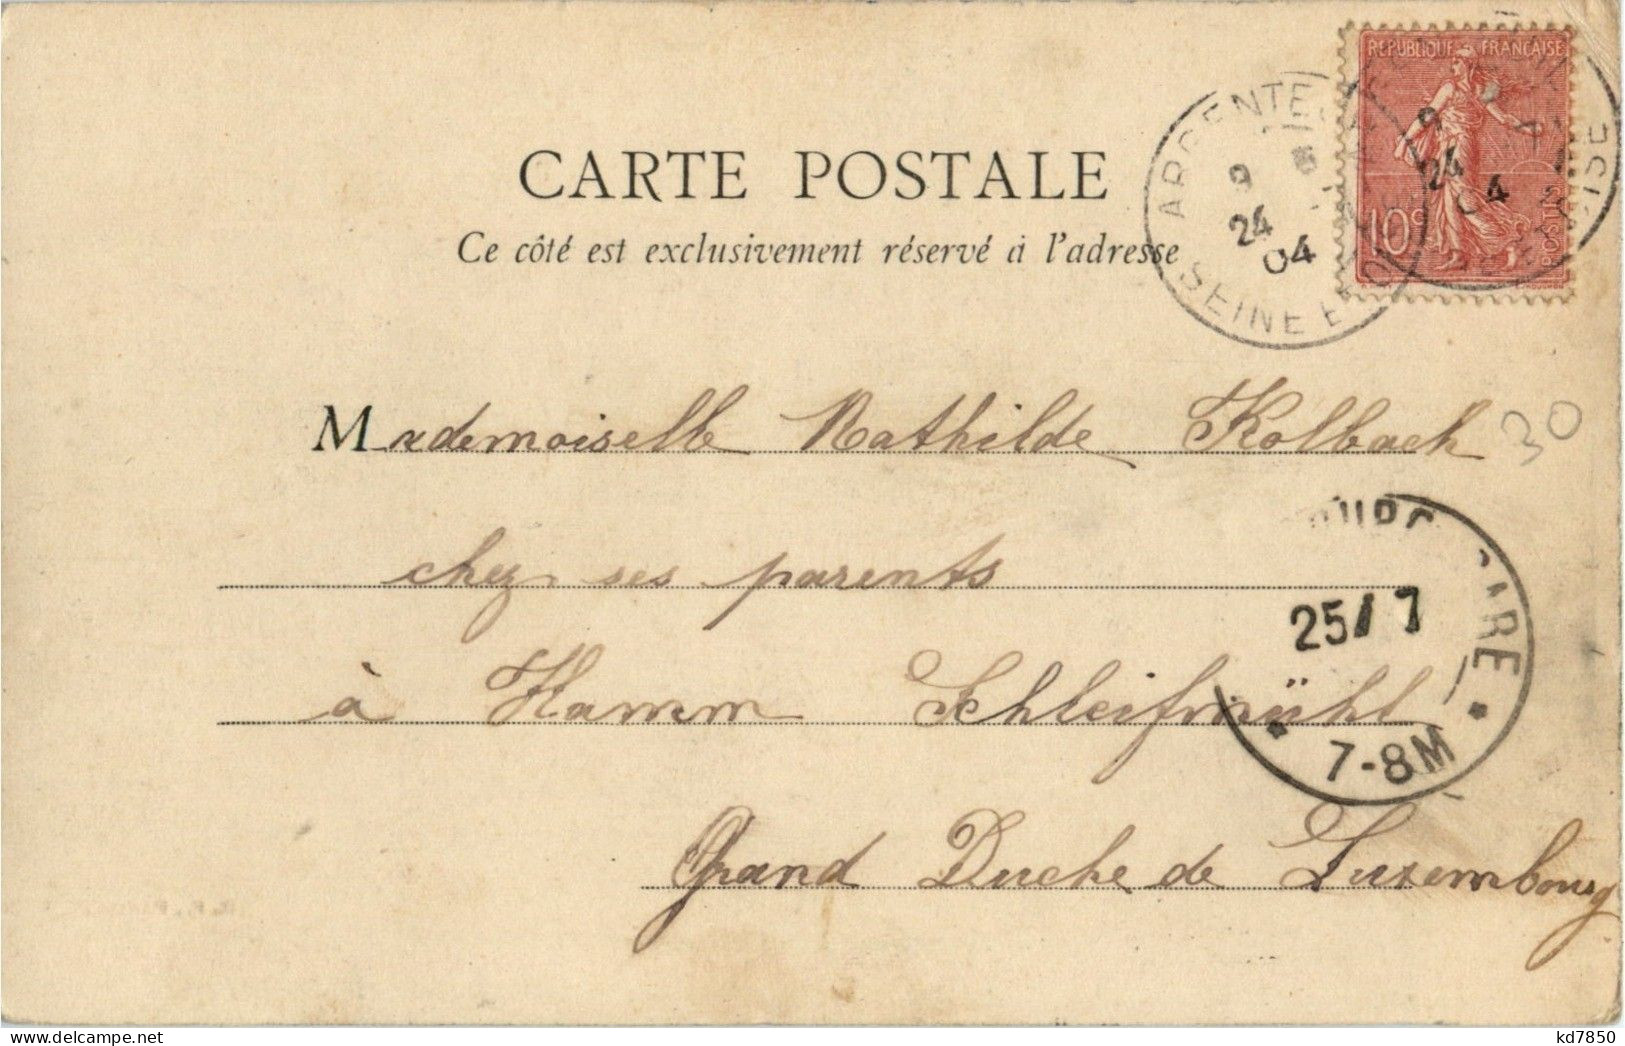 REPUBLIQUE FRANÇAISE
10c
POSTES
ARGENTEUIL
9
24
04
SEINE ET OISE
9
24
04
CARTE POSTALE
Ce côté est exclusivement réservé à l'adresse
Mademoiselle Mathilde Kolbach
30
chez ses parents
à Hamm Schleifmühl
GARE
25/7
7-8M
Grand Duche de Luxembourg
kd7850